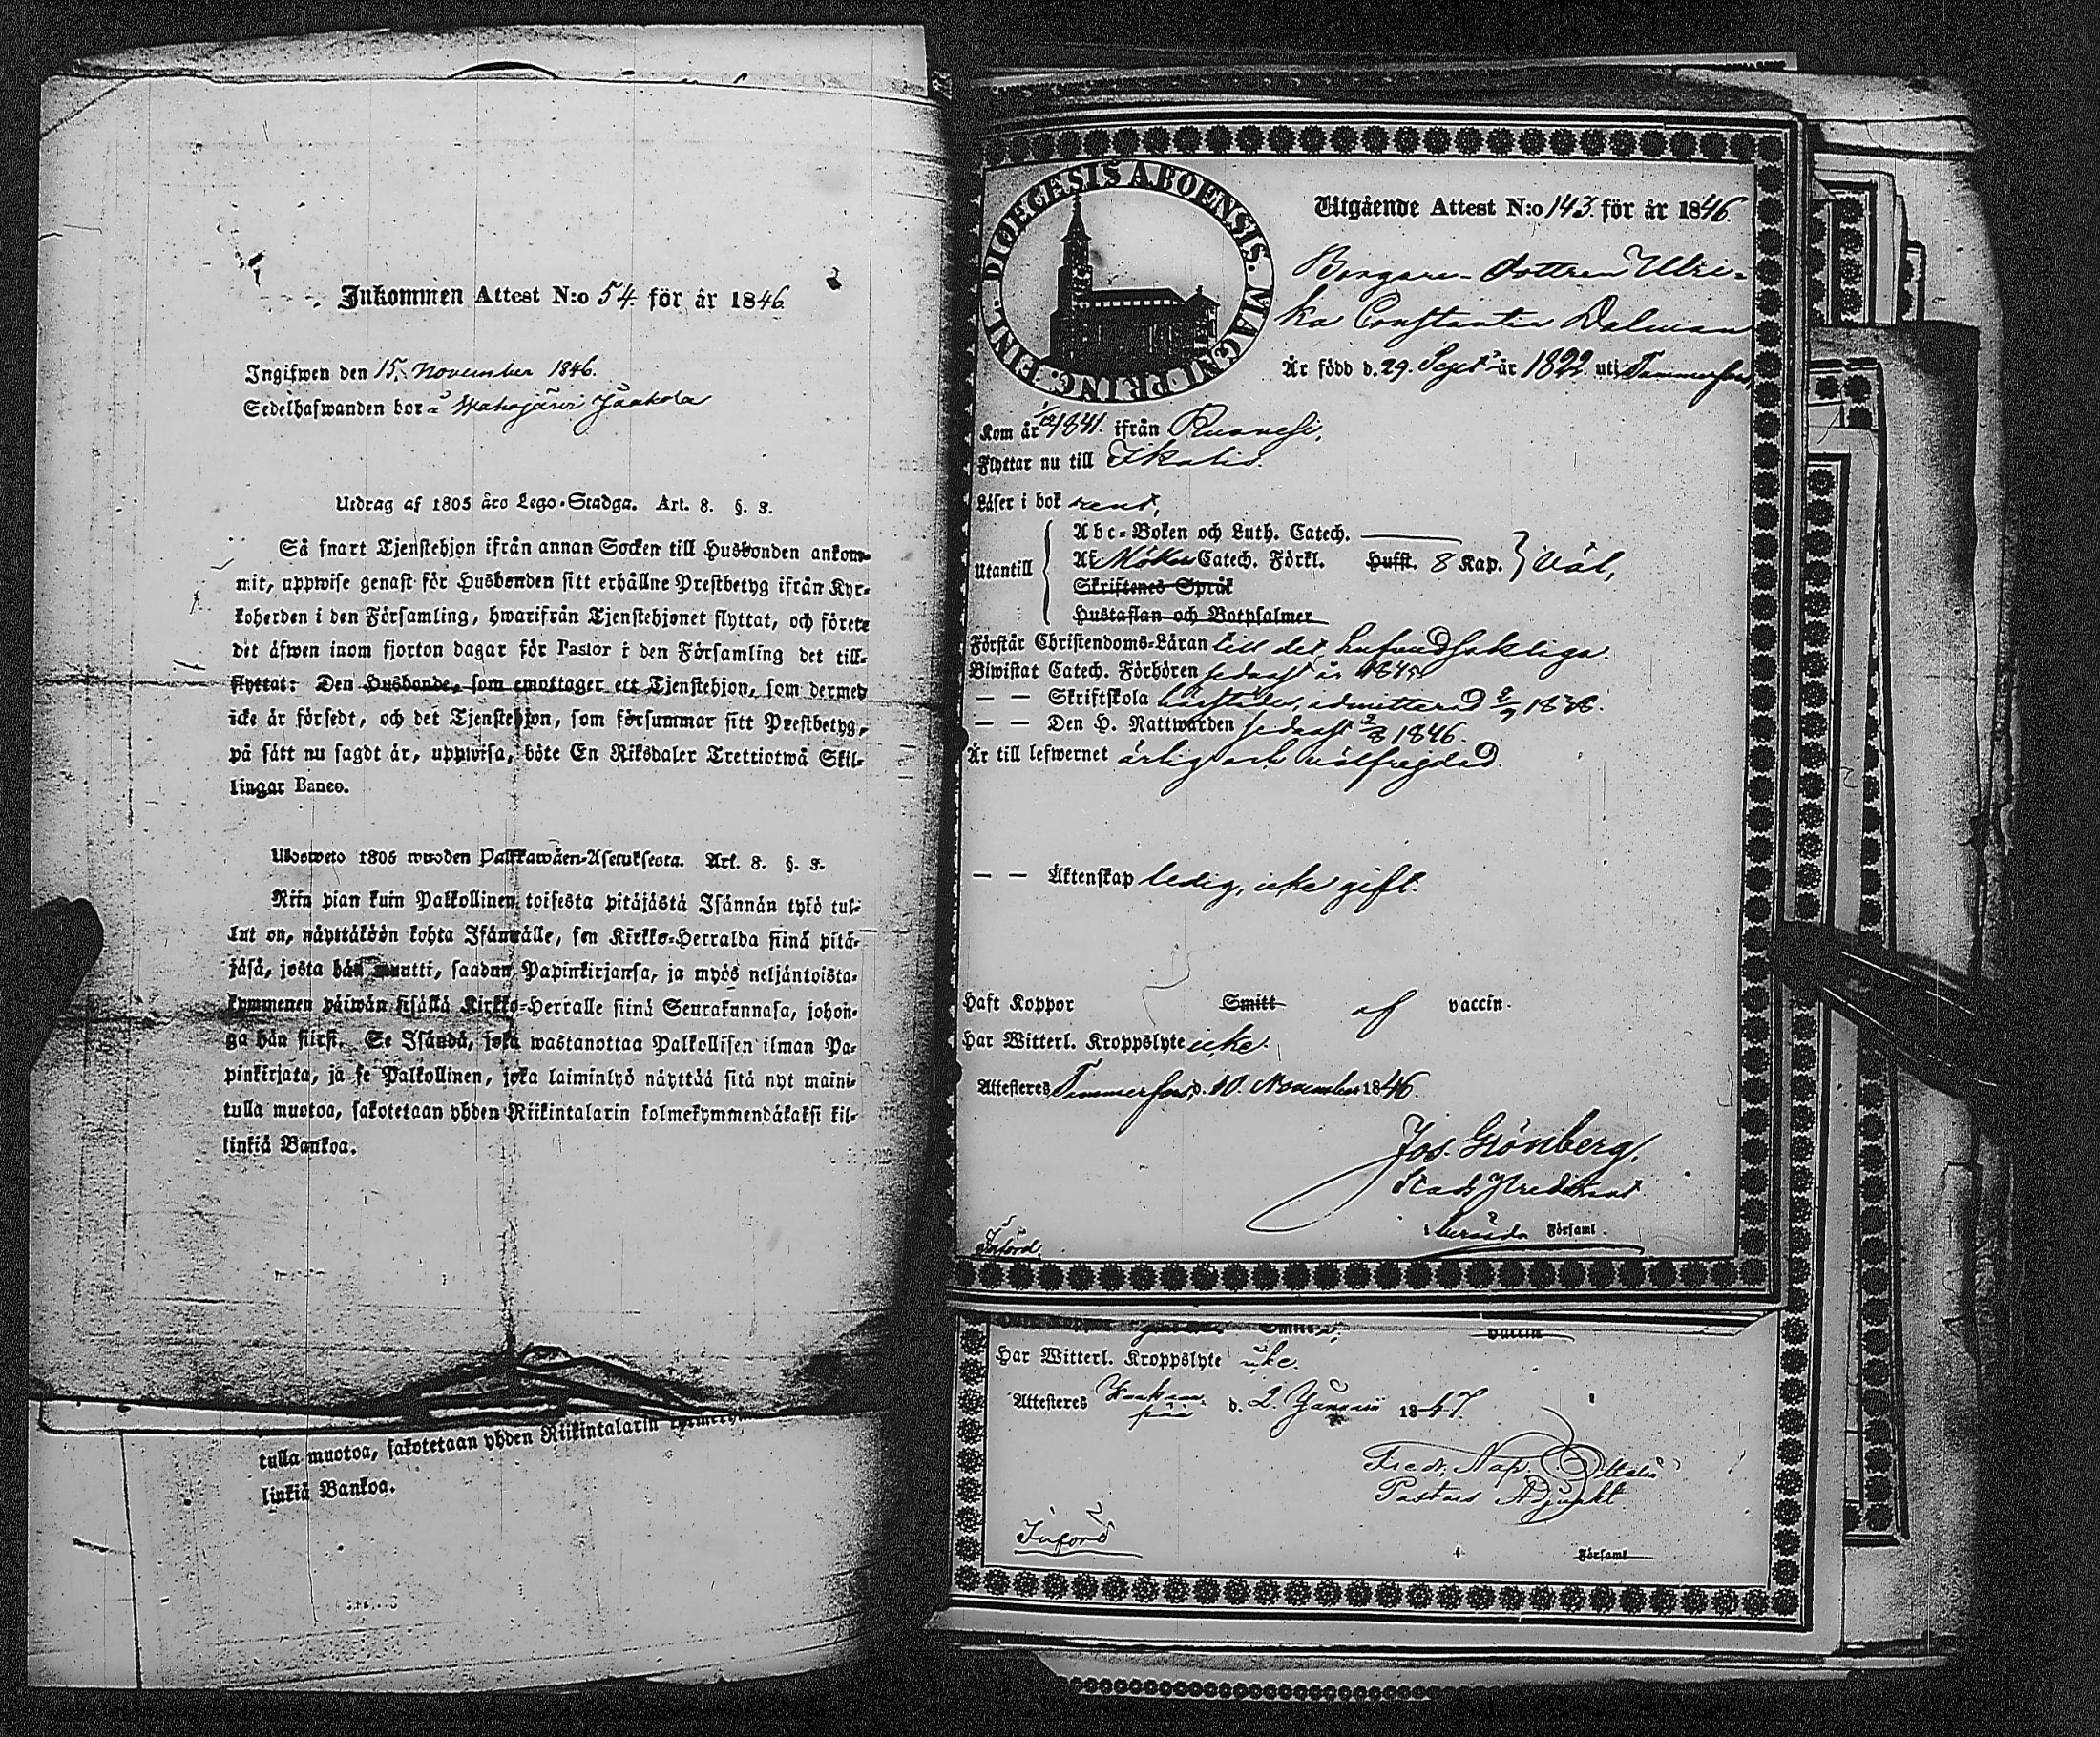 Inkommen Attest N:o 54. för år 1846
Ingifwen den 15. November 1846.
Sedelhafwanden bor å Mahnjärvi Jaakola
Utdrag af 1805 års Lego-Stadga. Art. 8. §. 3.
Så snart Tjenstehjon ifrån annan Socken till Husbonden ankom-
mit, uppwise genast för Husbonden sitt erhållne Prestbetyg ifrån Kyr-
koherden i den Församling, hwarifrån Tjenstehjonet flyttat, och förete
det äfwen inom fjorton dagar för Pastor i den Församling det till-
flyttat: Den Husbonde, som emottager ett Tjenstehjon, som dermed
icke är försedt, och det Tjenstehjon, som försummar sitt Prestbetyg,
på sätt nu sagdt är, uppwisa, böte En Riksdaler Trettiotwå Skil-
lingar Banco.
Ulosweto 1805 wuoden Palkkawäen-Asetuksesta. Art. 8. §. 3.
Niin pian kuin Palkollinen toisesta pitäjästä Isännän tykö tul-
lut on, näyttäköön kohta Isännälle, sen Kirkko-Herralda siinä pitä-
jäsä, josta hän muutti, saadun Papinkirjansa, ja myös neljäntoista-
kymmenen päiwän sisällä Kirkko-Herralle siinä Seurakunnasa, johon-
ga hän siirsi. Se Isändä, joka wastanottaa Palkollisen ilman Pa-
pinkirjata, ja se Palkollinen, joka laiminlyö näyttää sitä nyt maini-
tulla muotoa, sakotetaan yhden Riikintalarin kolmekymmendäkaksi kil-
linkiä Bankoa.
tulla muotoa, sakotetaan yhden Riikintalarin
linkiä Bankoa.
DIOECESIS ABOENSIS. MAGNI PRINC. FINL.
Utgående Attest N:o 143. för år 1846.
Borgare-dottren Ulri-
ka Constantia Dalman
Är född d. 29. Sept. år 1822. uti Tammerfors
Kom år 1841. ifrån Ruovesi,
Flyttar nu till Ikalis.
Läser i bok rent,
Utantill
Abc-Boken och Luth. Catech.
Af Möllers Catech. Förkl. Hufst. 8 Kap. } väl,
Skriftenes Språk
Hustaflan och Botpsalmer
Förstår Christendoms-Läran till det hufvudsakliga.
Biwistat Catech. Förhören sednast år
— — Skriftskola härstädes, admitterad
— — Den H. Nattwarden sednast 1846.
Är till lefwernet ärlig och välfrejdad.
— — Äktenskap ledig, icke gift.
Haft Koppor Smitt af vaccin.
Har Witterl. Kroppslyte icke.
Attesteres Tammerfors, d. 10. November 1846.
Jos. Grönberg,
Stads Predikant
i Församl.
Införd
vaccin
Har Witterl. Kroppslyte icke.
Attesteres d. 2. Januarii 1847.
Fredr. Nap.
Pastors Adjunkt
Införd
i Församl